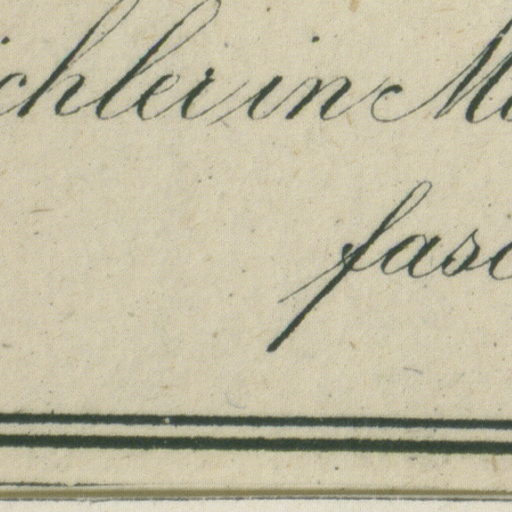 ichler in M
fasc